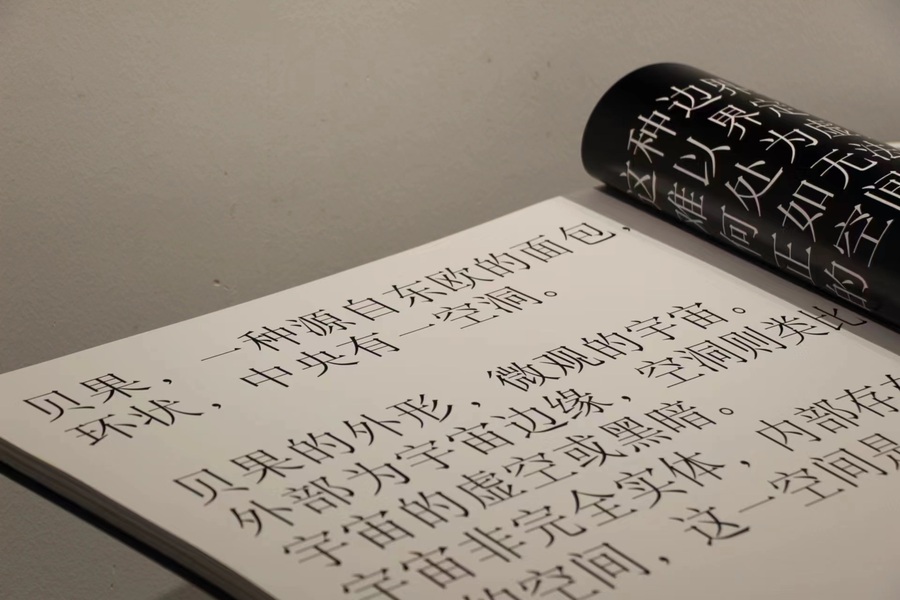 贝果，一种源自东欧的面包，
环状，中央有一空洞。
贝果的外形，微观的宇宙。
外部为宇宙边缘，空洞则类比
宇宙的虚空或黑暗。
宇宙非完全实体，内部存
的空间，这一空间是
这种边
难以界定
何处为虚
正如无法
的空间